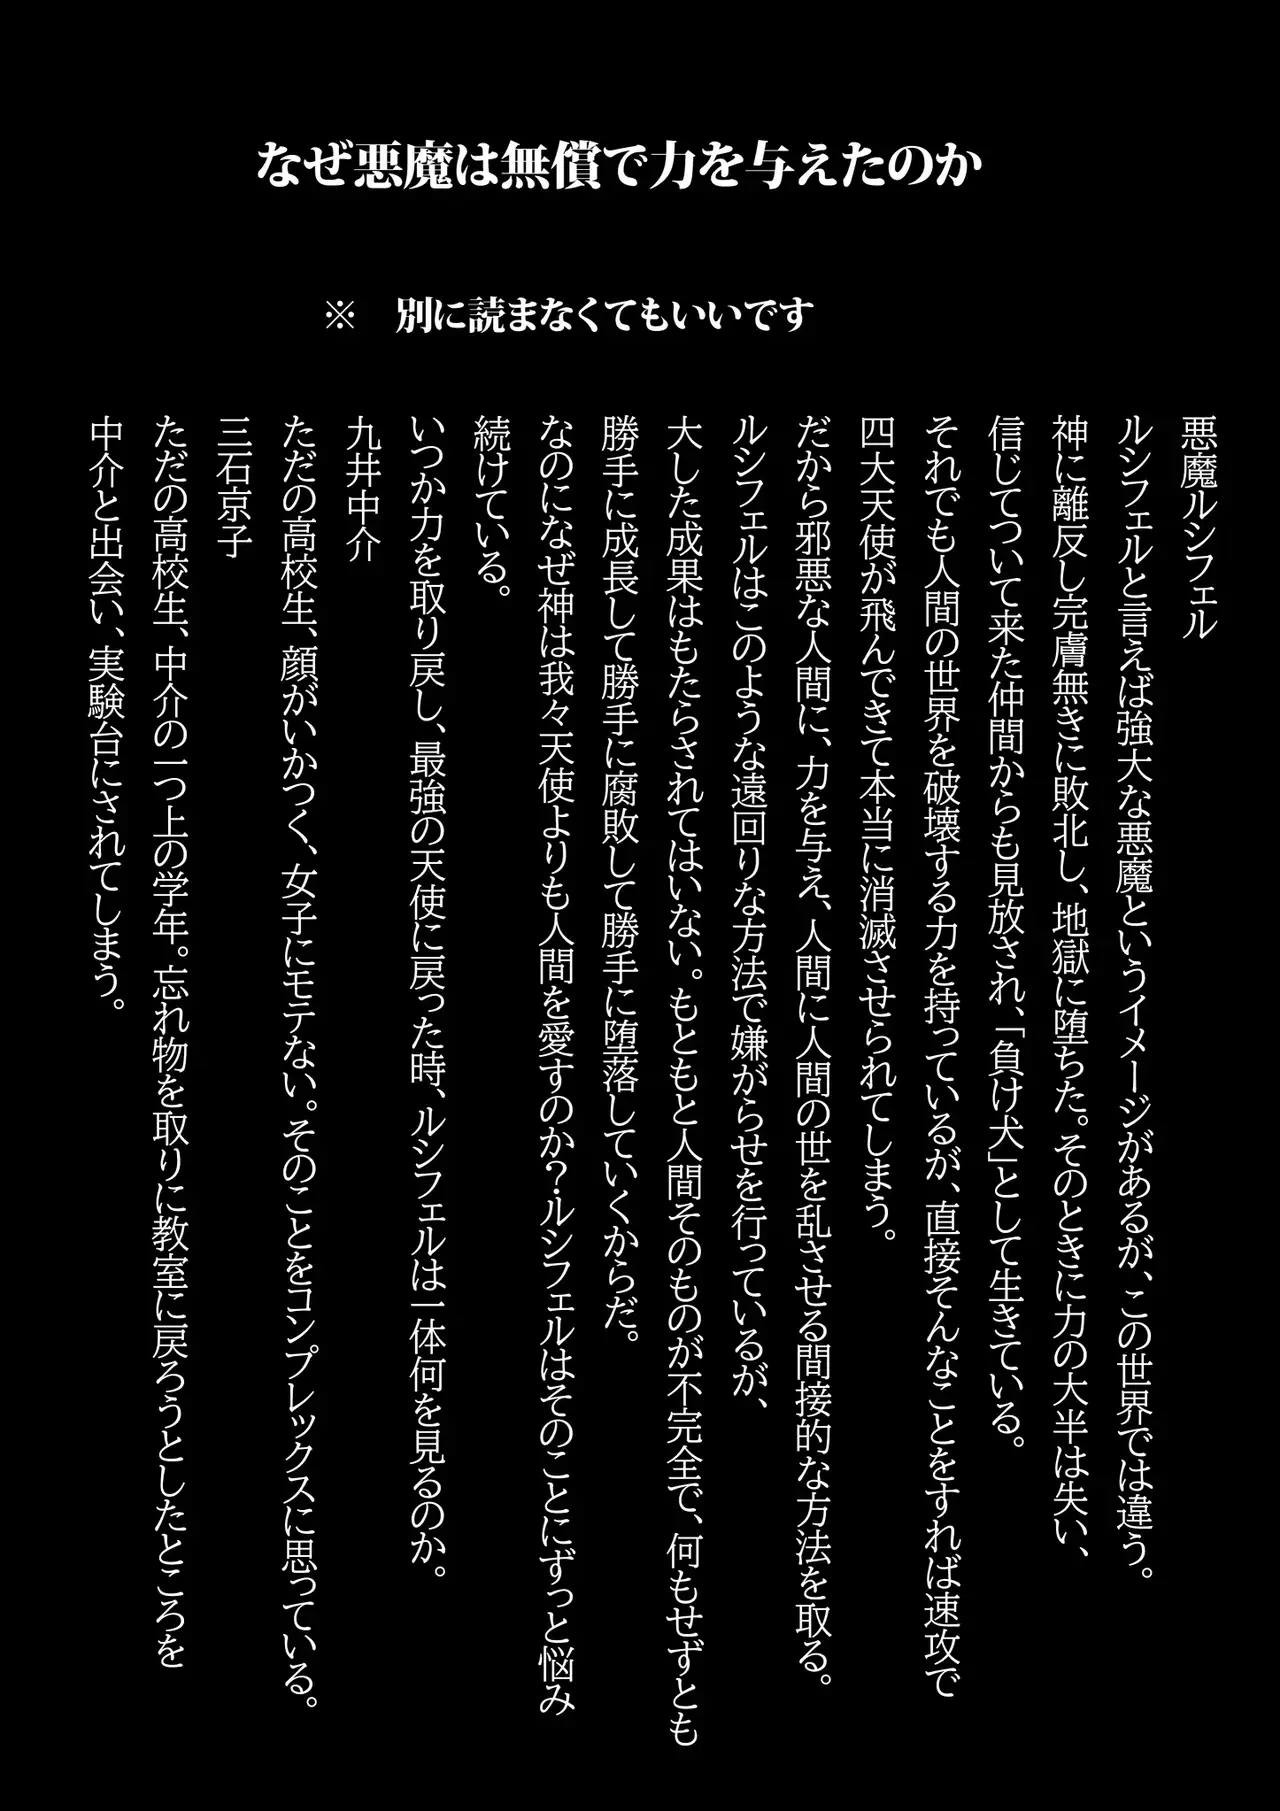 なぜ悪魔は無償で力を与えたのか
※　別に読まなくてもいいです
悪魔ルシフェル
ルシフェルと言えば強大な悪魔というイメージがあるが、この世界では違う。
神に離反し完膚無きに敗北し、地獄に堕ちた。そのときに力の大半は失い、
信じてついて来た仲間からも見放され、「負け犬」として生きている。
それでも人間の世界を破壊する力を持っているが、直接そんなことをすれば速攻で
四大天使が飛んできて本当に消滅させられてしまう。
だから邪悪な人間に、力を与え、人間に人間の世を乱させる間接的な方法を取る。
ルシフェルはこのような遠回りな方法で嫌がらせを行っているが、
大した成果はもたらされてはいない。もともと人間そのものが不完全で、何もせずとも
勝手に成長して勝手に腐敗して勝手に堕落していくからだ。
なのになぜ神は我々天使よりも人間を愛すのか？ルシフェルはそのことにずっと悩み
続けている。
いつか力を取り戻し、最強の天使に戻った時、ルシフェルは一体何を見るのか。
九井中介
ただの高校生、顔がいかつく、女子にモテない。そのことをコンプレックスに思っている。
三石京子
ただの高校生、中介の一つ上の学年。忘れ物を取りに教室に戻ろうとしたところを
中介と出会い、実験台にされてしまう。